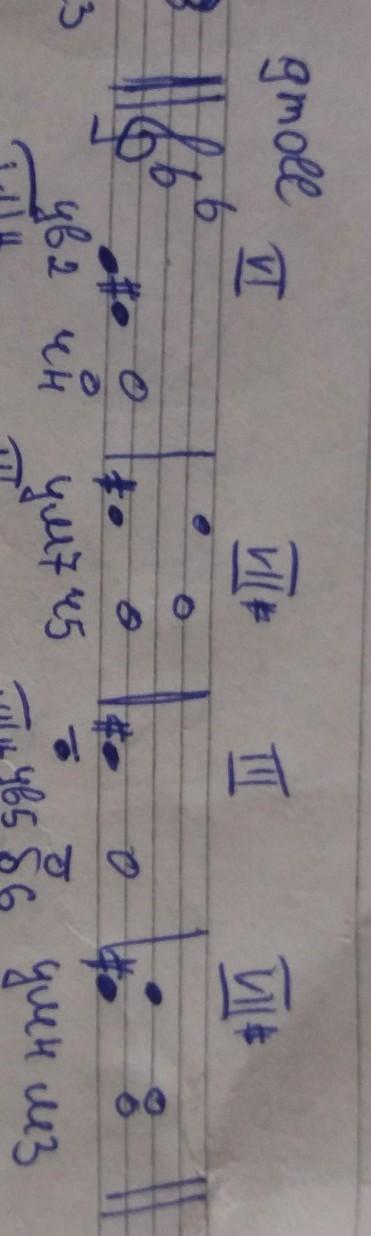 g moll
VI VII# III VII#
ув2 ч4 ум7 ч5 ув5 б6 ум4 м3
III